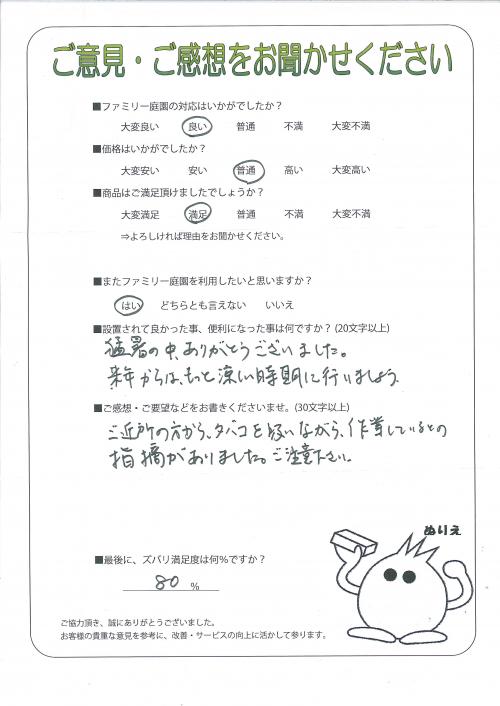 ご意見・ご感想をお聞かせください
■ファミリー庭園の対応はいかがでしたか?
大変良い 良い 普通 不満 大変不満
■価格はいかがでしたか?
大変安い 安い 普通 高い 大変高い
■商品はご満足頂けましたでしょうか?
大変満足 満足 普通 不満 大変不満
⇒よろしければ理由をお聞かせください。
■またファミリー庭園を利用したいと思いますか?
はい どちらとも言えない いいえ
■設置されて良かった事、便利になった事は何ですか?(20文字以上)
猛暑の中、ありがとうございました。
来年からは、もっと涼しい時期に行いましょう。
■ご感想・ご要望などをお書きくださいませ。(30文字以上)
ご近所の方から、タバコを吸いながら、作業しているとの
指摘がありました。ご注意下さい。
ぬりえ
■最後に、ズバリ満足度は何%ですか?
80 %
ご協力頂き、誠にありがとうございました。
お客様の貴重な意見を参考に、改善・サービスの向上に活かして参ります。